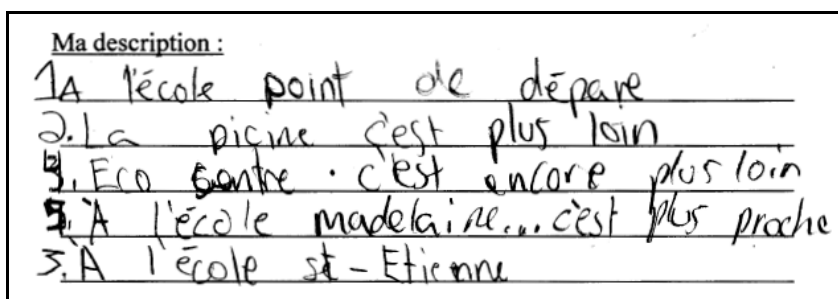 Ma description :
1A l'école point de dépare
2. La picine c'est plus loin
4. Eco sontre . c'est encore plus loin
5. À l'école madelaine... c'est plus proche
3. À l'école st-Etienne